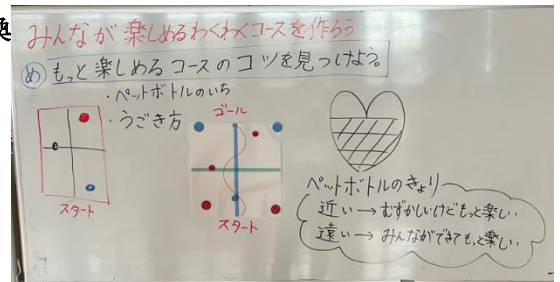 みんなが楽しめるわくわくコースを作ろう
め もっと楽しめるコースのコツを見つけよう。
・ペットボトルのいち
・うごき方
スタート
ゴール
スタート
ペットボトルのきょり
近い→むずかしいけどもっと楽しい。
遠い→みんなができてもっと楽しい。